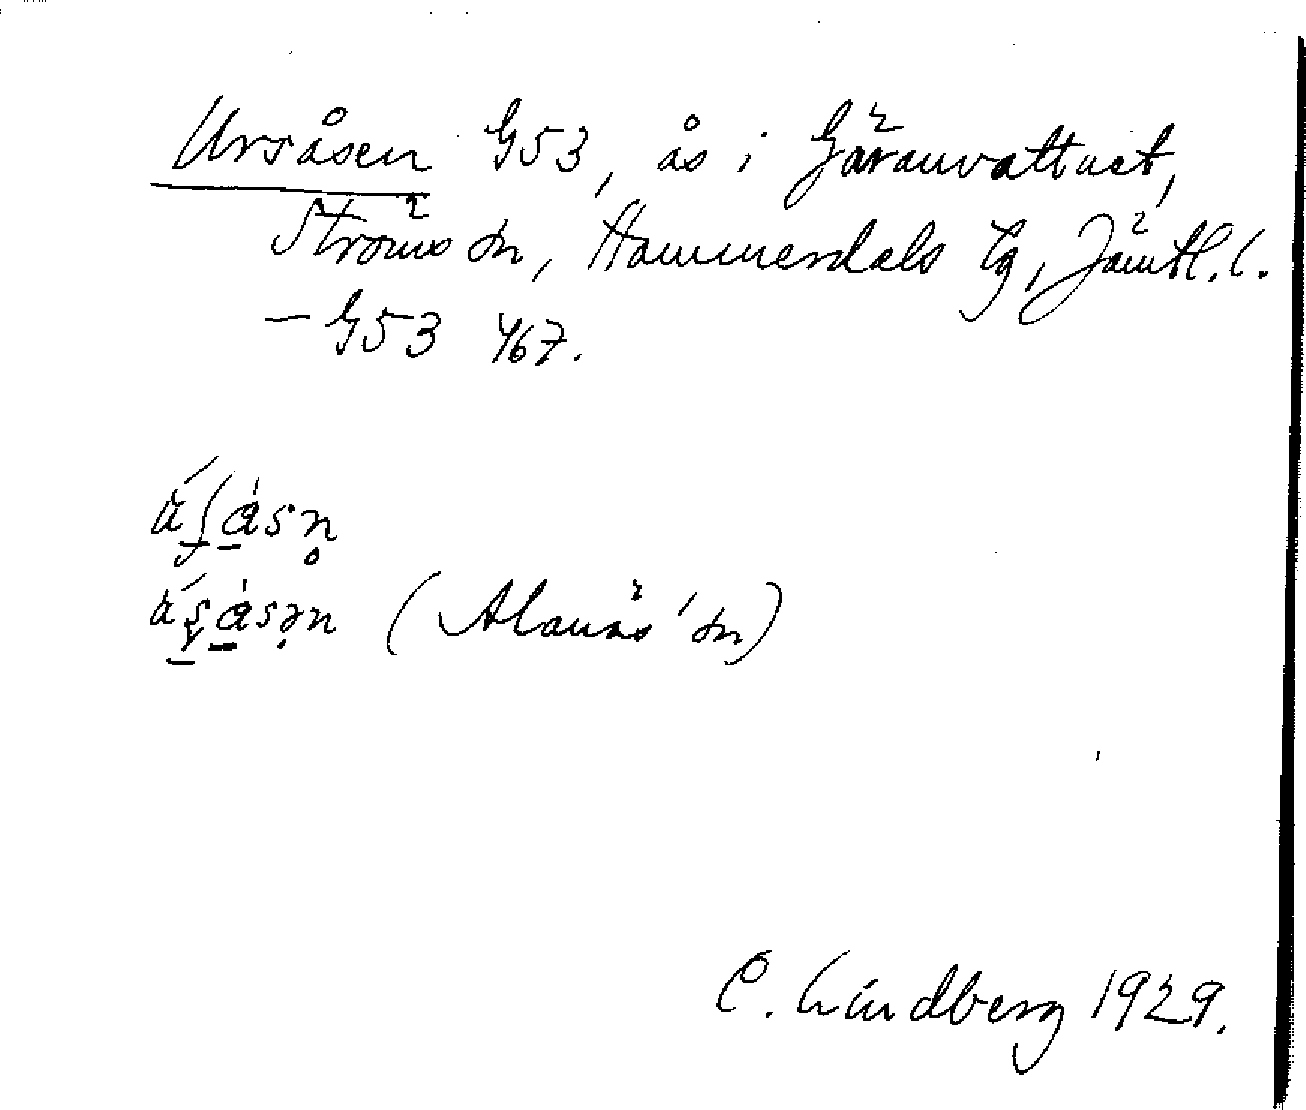 Ursåsen G53, ås i Gäranvattnet,
Ströms sn, Hammerdals tg, Jämtl. l.
— G53 467.
(Alanäs' sn)
C. Lindberg 1929.